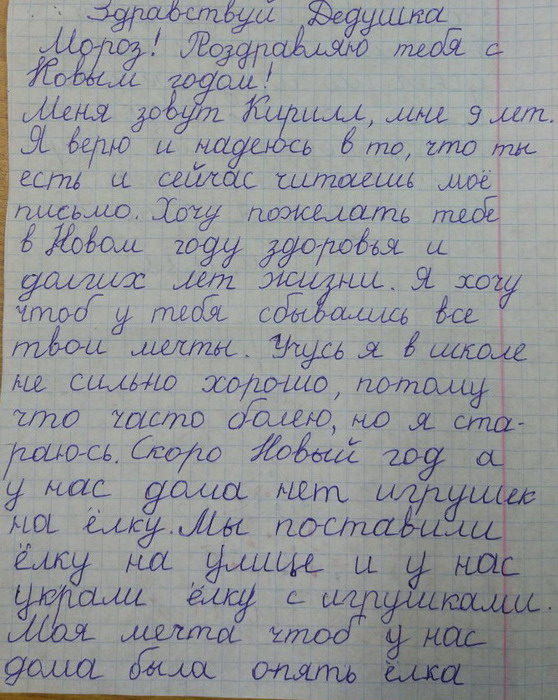 Здравствуй Дедушка
Мороз! Поздравляю тебя с
Новым годом!
Меня зовут Кирилл, мне 9 лет.
Я верю и надеюсь в то, что ты
есть и сейчас читаешь моё
письмо. Хочу пожелать тебе
в Новом году здоровья и
долгих лет жизни. Я хочу
чтоб у тебя сбывались все
твои мечты. Учусь я в школе
не сильно хорошо, потому
что часто болею, но я ста-
раюсь. Скоро Новый год а
у нас дома нет игрушек
на ёлку. Мы поставили
ёлку на улице и у нас
украли ёлку с игрушками.
Моя мечта чтоб у нас
дома была опять ёлка